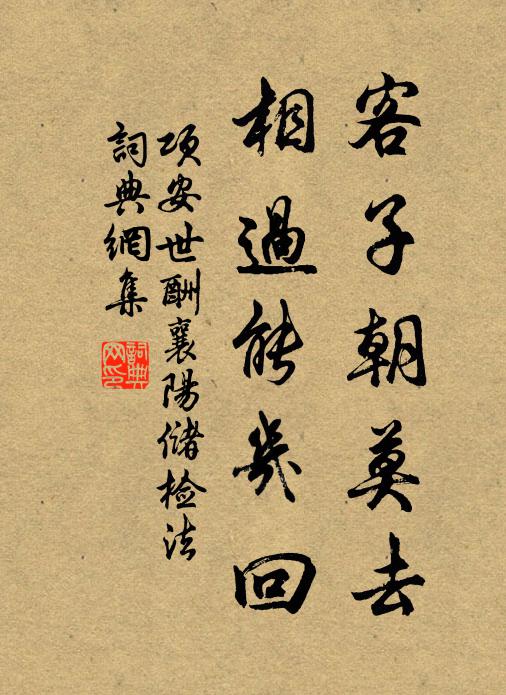 客子朝莫去
相過能幾回
項安世酬襄陽儲檢法
詞典網集
詞典網印